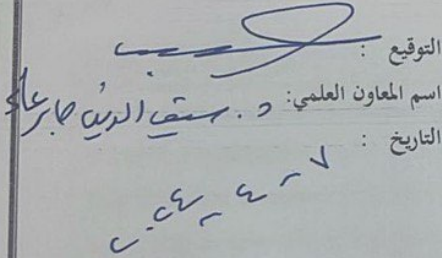 التوقيع :
اسم المعاون العلمي: د. سيف الدين جابر
التاريخ : ٧ - ٤ - ٢٠٢٤